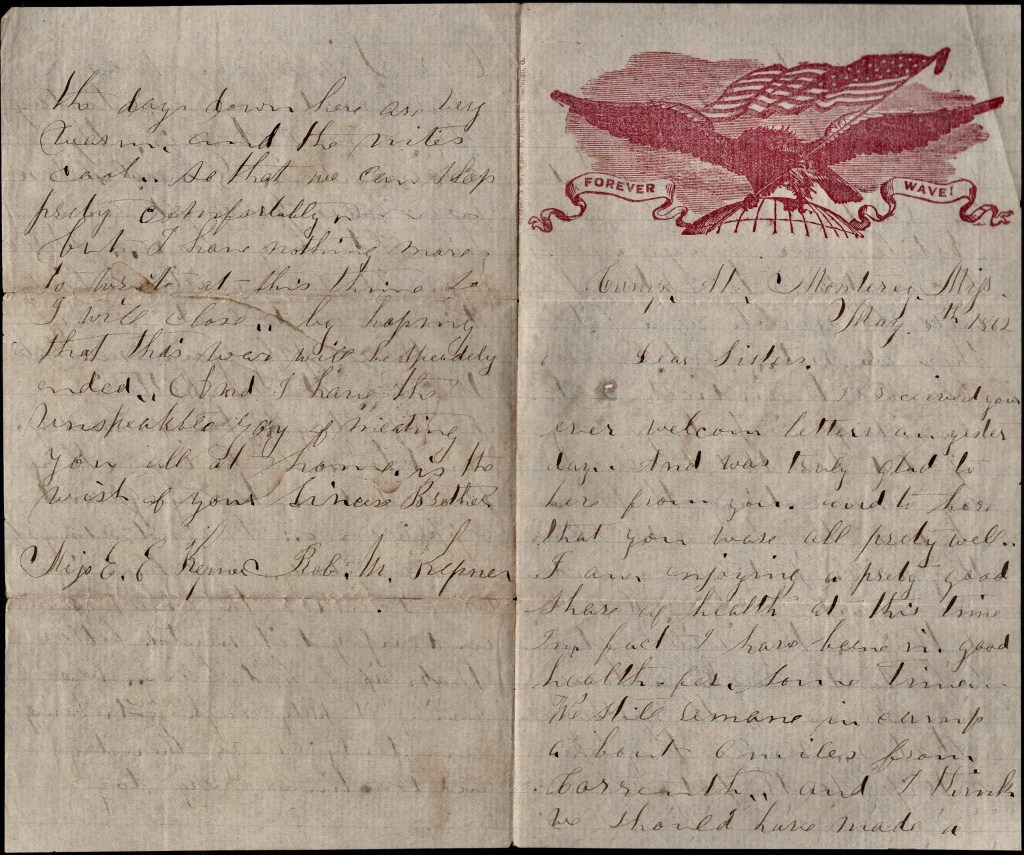 FOREVER WAVE!
Camp. At, Monterey, Miss.
May. 8th 1862
Dear Sisters.
I received your
ever welcom letters on yester
day. And was truly glad to
here from you. and to here
that you ware all prety well..
I am enjoying a prety good
share of health at this time
In fact I have been in good
health for some time.
We still remane in camp
a bout 6 miles from
Correnth,, and I think
we should have made a
the days down here are very
warm. and the nites
cool.. so that we can sleep
prety comfortably.
but I have nothing more
to write at this time So
I will close,, by hopeing
that this war will be speadely
ended,. And I have the
unspeakble Joy of meating
you all at home. is the
wish of your Sincere Brother
Miss E. E Kepner Rob. M. Kepner